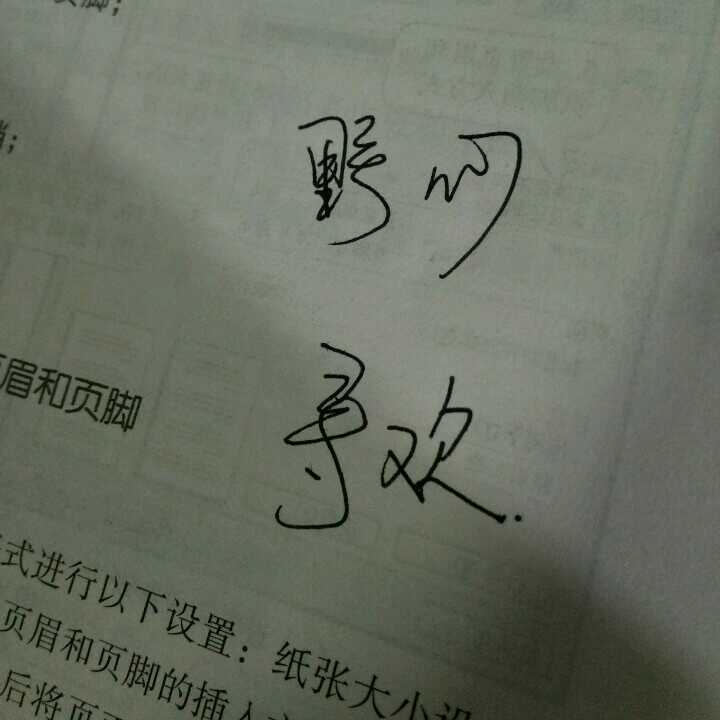 页脚;
野心
寻欢.
眉和页脚
式进行以下设置：纸张大小设
页眉和页脚的插入
后将页